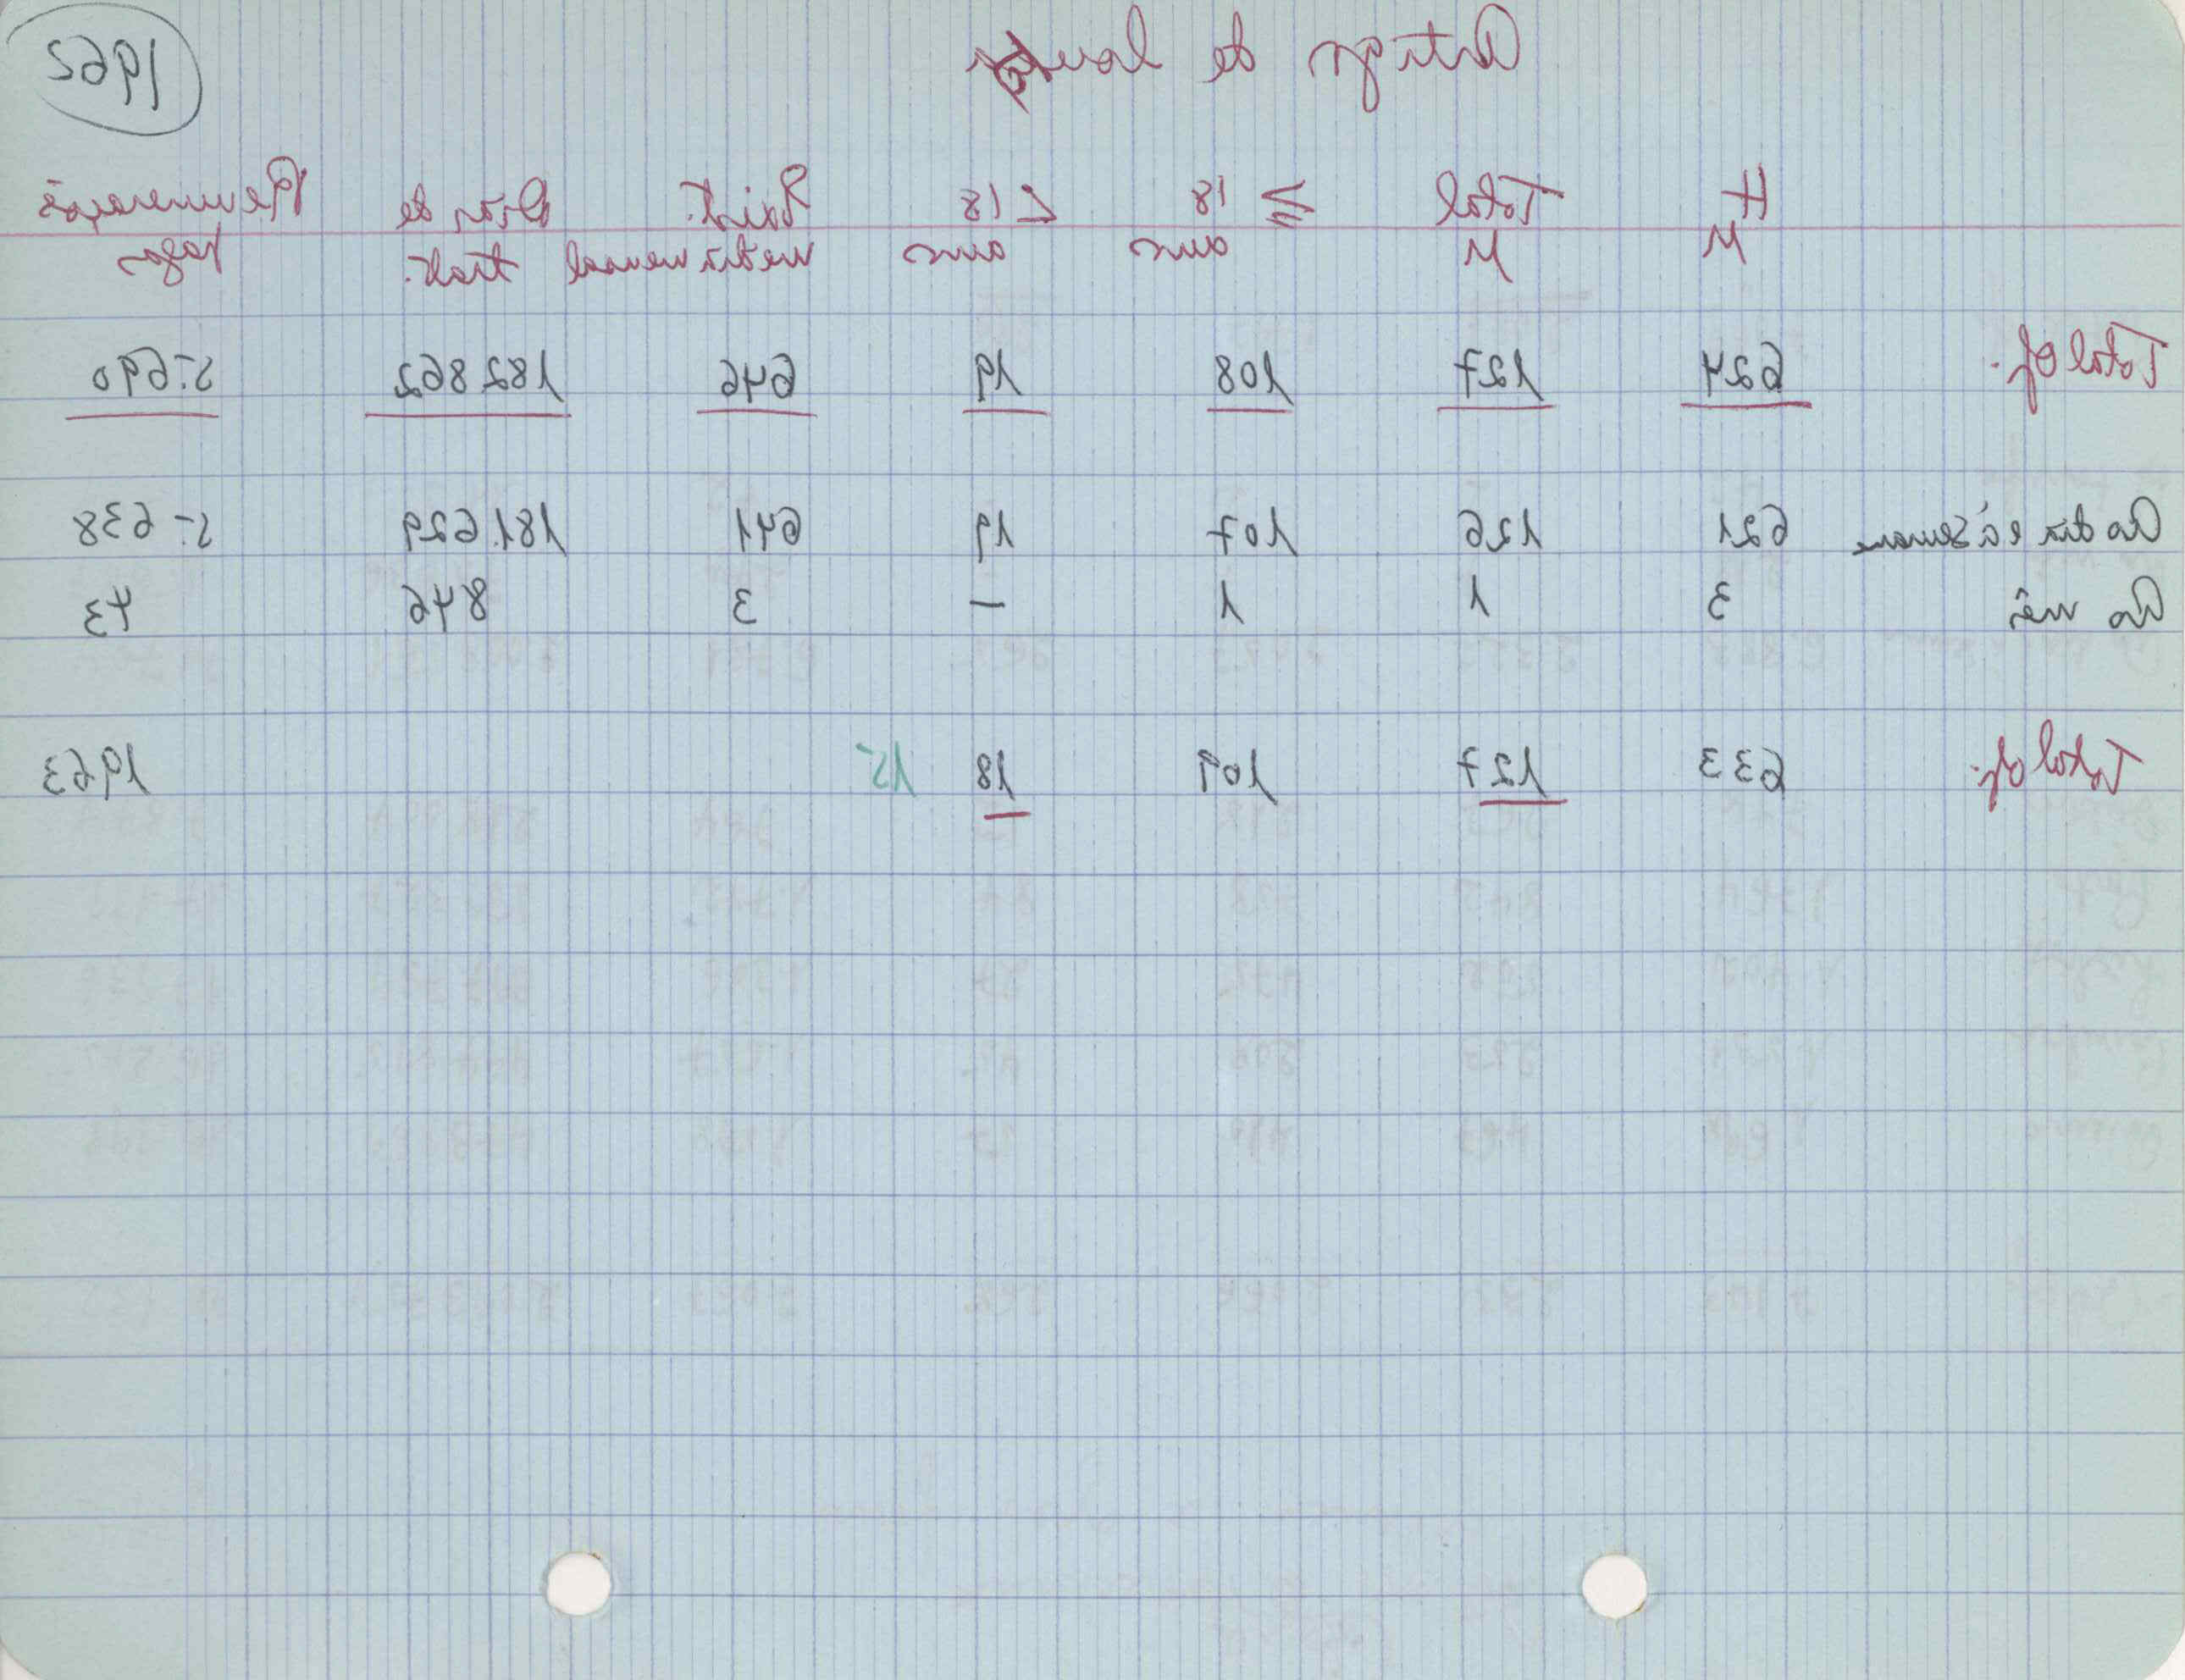 Artigos de lousa
1962
H M Total M ≥ 18 anos < 18 anos Exist. média mensal Dias de trab. Remunerações pagas
Total Of. 624 127 108 19 646 182 862 5.690
Ao dia e à semana 621 126 107 19 641 181.629 5.638
Ao mês 3 1 1 — 3 846 43
Total Of. 633 127 109 18 15 1963